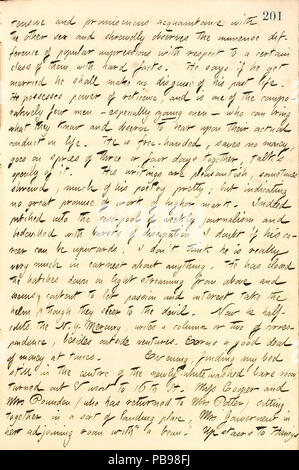 201
tensive and promiscuous acquaintance with
the other sex and shrewdly observes the immense dif-
ference of popular impressions with respect to a certain
class of them with hard facts. He says if he get
married he shall make no disguise of his past life.
He possesses power of reticence, and is one of the compar-
atively few men — especially young men — who can bring
what they know and observe to bear upon their actual
conduct in life. He is free-handed, saves no money,
goes on sprees of three or four days together, talks
openly of it. His writings are pleasantish, sometimes
shrewd, much of his poetry pretty; but indicating
no great promise of work of higher mark. Indeed
pitched into the cess-pool of weekly journalism and
bedevilled with bursts of dissipation, I doubt if his ca-
reer can be upwards. I don't think he is really
very much in earnest about anything. He has closed
the hatches down on light streaming from above and
seems content to let passion and interest take the
helm, though they steer to the devil. Now he half-
edits the N. Y. Mercury, writes a column or two of corres-
pondence, besides outside ventures. Earns a good deal
of money at times. Evening, finding my bed
still in the centre of the newly white-washed bare room
turned out & went to 16th st. Miss Cooper and
Mrs Pounden (who has returned to Mrs Potter) sitting
together in a sort of landing place, Mrs Gouverneur in
her adjoining room with "a beau." Up stairs to
alamy
alamy
Image ID: PB98FJ
www.alamy.com